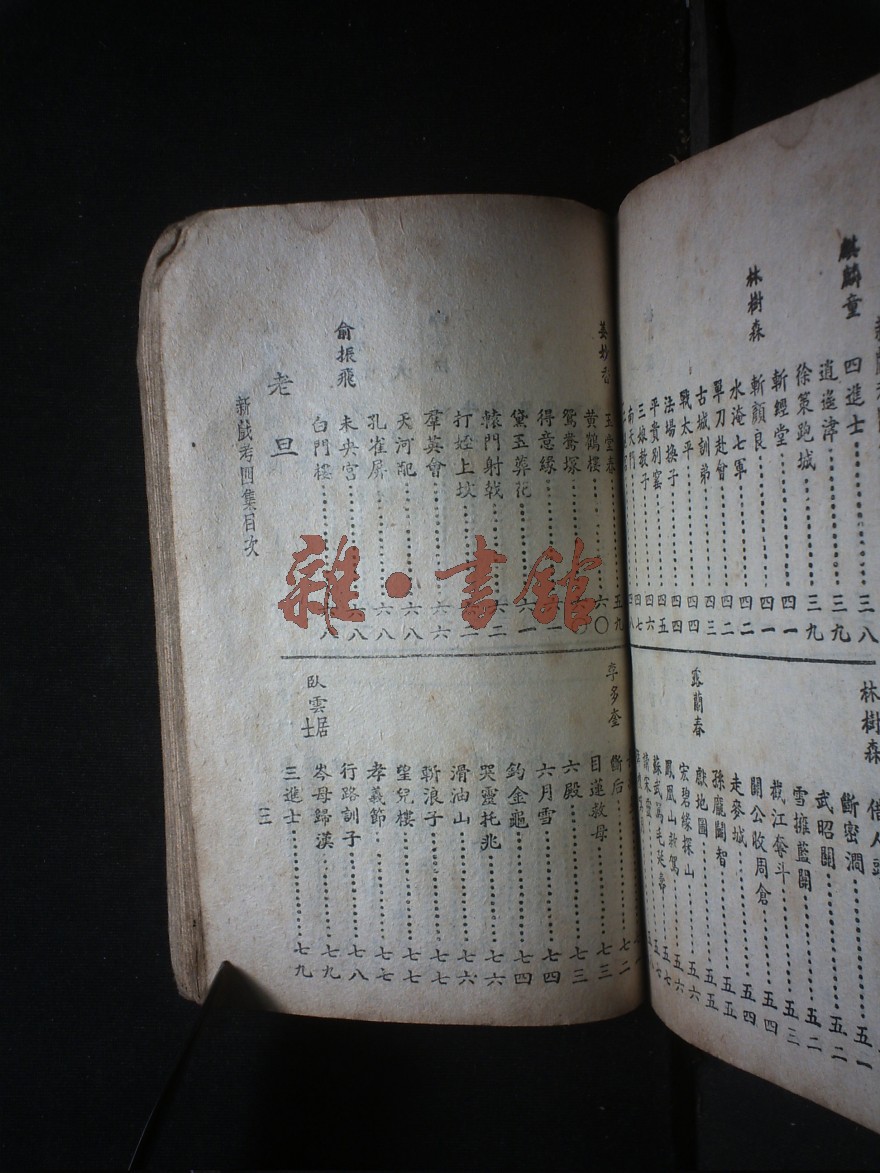 麒麟童
四進士 三八
逍遙津 三九
徐策跑城 三九
斬經堂 四一
林樹森
斬顏良 四一
水淹七軍 四二
單刀赴會 四二
古城訓弟 四三
戰太平 四四
法場換子 四四
平貴別窰 四五
三娘教子 四六
南天門 四七
林樹森
借人頭 五一
斷密澗 五二
武昭關 五二
雪擁藍關 五三
截江奪斗 五四
關公收周倉 五四
走麥城 五五
孫龐鬭智 五五
獻地圖 五六
露蘭春
宏碧緣探山 五六
鳳凰山救駕 五七
蘇武罵毛延壽
玉堂春 五九
黃鶴樓 六〇
鴛鴦塚
得意緣
黛玉葬花 六一
轅門射戟
打姪上坟
羣英會 六六
天河配 六八
孔雀屏 六八
俞振飛
未央宮
白門樓
老旦
新戲考四集目次
李多奎
斷后 七二
目蓮救母 七三
六殿 七三
六月雪 七四
釣金龜 七四
哭靈托兆 七六
滑油山 七六
斬浪子 七七
望兒樓 七七
孝義節 七七
行路訓子 七八
臥雲居士
岑母歸漢 七九
三進士 七九
三
雜·書館